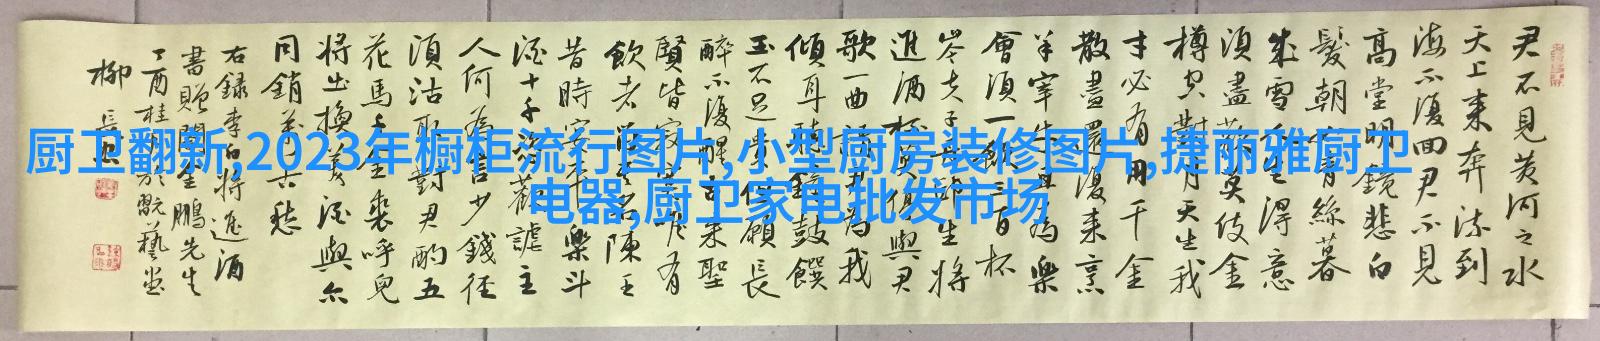 君不見黃河之水
天上来奔流到
海不復回君不見
高堂明鏡悲白
髮朝如青絲暮
成雪人生得意
須盡歡莫使金
樽空對月天生我
才必有用千金
散盡還復来烹
羊宰牛且為樂
會須一飲三百杯
岑夫子丹丘生將
進酒杯莫停與君
歌一曲請君為我
傾耳聽鐘鼓饌
玉不足貴但願長
醉不復醒古来聖
賢皆寂寞唯有
飲者留其名陳王
昔時宴平樂斗
酒十千恣歡謔主
人何為言少錢径
須沽取對君酌五
花馬千金裘呼兒
將出換美酒與尔
同銷萬古愁
右録李白將進酒
書贈金鵬先生
丁酉桂於翫藝堂
柳長
厨卫翻新,2023年橱柜流行图片,小型厨房装修图片,捷丽雅厨卫
电器,厨卫家电批发市场